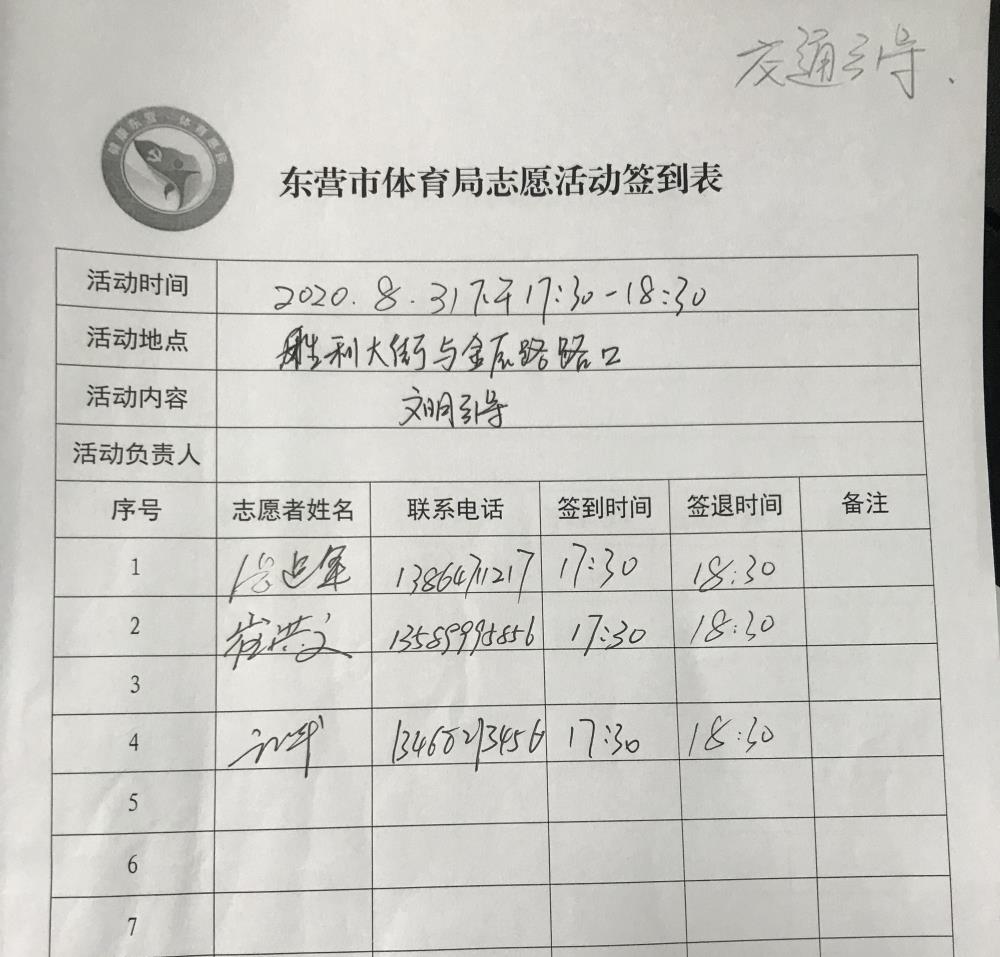 交通引导.
健康东营 体育惠民
东营市体育局志愿活动签到表
活动时间 2020.8.31下午17:30-18:30
活动地点 胜利大街与金辰路路口
活动内容 文明引导
活动负责人
序号 志愿者姓名 联系电话 签到时间 签退时间 备注
1 13864711217 17:30 18:30
2 崔洪文 13589995856 17:30 18:30
3
4 17:30 18:30
5
6
7